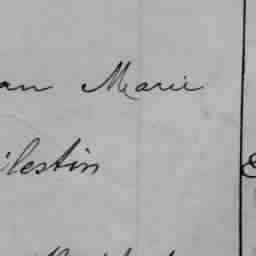 an Marie
ilestin